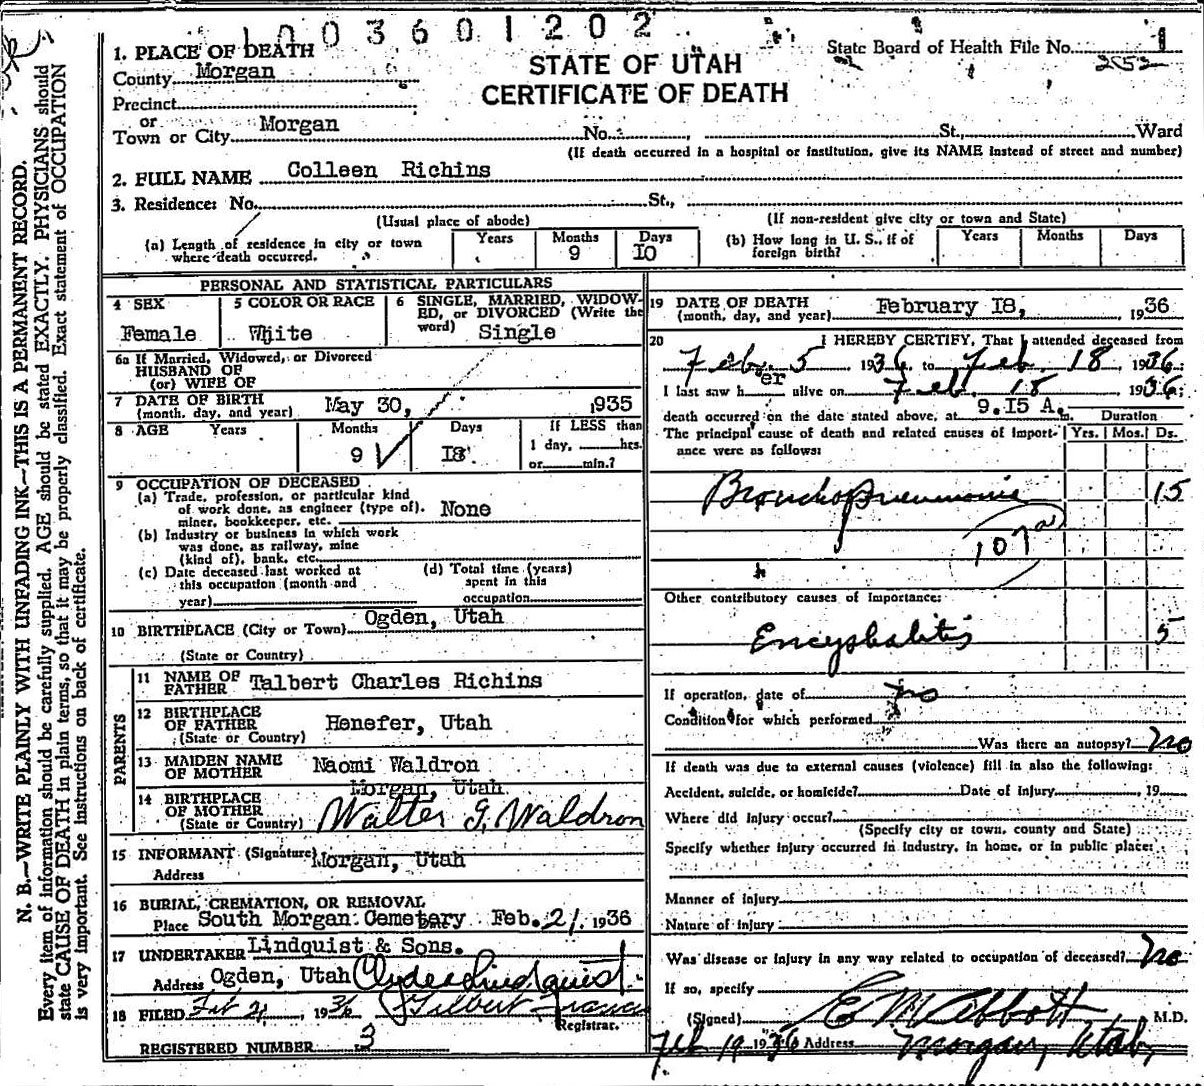 1003601202
1. PLACE OF DEATH
County Morgan
Precinct
or
Town or City Morgan No. St., Ward
STATE OF UTAH
CERTIFICATE OF DEATH
State Board of Health File No. 1
(If death occurred in a hospital or institution, give its NAME instead of street and number)
2. FULL NAME Colleen Richins
3. Residence: No. St.,
(Usual place of abode) (If non-resident give city or town and State)
(a) Length of residence in city or town where death occurred. Years Months 9 Days 10
(b) How long in U. S., if of foreign birth? Years Months Days
PERSONAL AND STATISTICAL PARTICULARS
4 SEX Female
5 COLOR OR RACE White
6 SINGLE, MARRIED, WIDOWED, or DIVORCED (Write the word) Single
6a If Married, Widowed, or Divorced
HUSBAND OF
(or) WIFE OF
7 DATE OF BIRTH
(month, day, and year) May 30, 1935
8 AGE Years Months 9 Days 18
If LESS than
1 day, hrs.
or min.?
9 OCCUPATION OF DECEASED
(a) Trade, profession, or particular kind
of work done, as engineer (type of).
miner, bookkeeper, etc. None
(b) Industry or business in which work
was done, as railway, mine
(kind of), bank, etc.
(c) Date deceased last worked at
this occupation (month and
year)
(d) Total time (years)
spent in this
occupation
10 BIRTHPLACE (City or Town) Ogden, Utah
(State or Country)
PARENTS
11 NAME OF
FATHER Talbert Charles Richins
12 BIRTHPLACE
OF FATHER Henefer, Utah
(State or Country)
13 MAIDEN NAME
OF MOTHER Naomi Waldron
14 BIRTHPLACE
OF MOTHER Morgan, Utah
(State or Country)
Walter G. Waldron
15 INFORMANT (Signature) Morgan, Utah
Address
16 BURIAL, CREMATION, OR REMOVAL
Place South Morgan Cemetary Feb. 21. 1936
17 UNDERTAKER Lindquist & Sons.
Address Ogden, Utah Clyde Lindquist
18 FILED Feb 21, 1936 Gilbert Francis
Registrar.
REGISTERED NUMBER 3
19 DATE OF DEATH
(month, day, and year) February 18, 1936
20 I HEREBY CERTIFY, That I attended deceased from
Feb. 5 1936 to Feb. 18 1936;
I last saw her alive on Feb 18 1936;
death occurred on the date stated above, at 9.15 A. m. Duration
The principal cause of death and related causes of importance were as follows: Yrs. Mos. Ds.
Bronchopneumonia 15
107a
Other contributory causes of importance:
Encyphalitis 5
If operation, date of no
Condition for which performed
Was there an autopsy? no
If death was due to external causes (violence) fill in also the following:
Accident, suicide, or homicide? Date of injury , 19
Where did injury occur?
(Specify city or town, county and State)
Specify whether injury occurred in industry, in home, or in public place:
Manner of injury
Nature of injury
Was disease or injury in any way related to occupation of deceased? no
If so, specify
(Signed) E M Abbott M.D.
Feb 19 1936 Address Morgan, Utah,
N. B.—WRITE PLAINLY WITH UNFADING INK—THIS IS A PERMANENT RECORD.
Every item of information should be carefully supplied. AGE should be stated EXACTLY. PHYSICIANS should
state CAUSE OF DEATH in plain terms, so that it may be properly classified. Exact statement of OCCUPATION
is very important. See instructions on back of certificate.